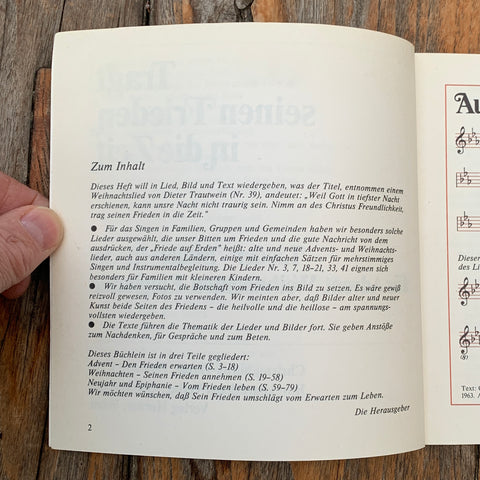 Zum Inhalt
Dieses Heft will in Lied, Bild und Text wiedergeben, was der Titel, entnommen einem
Weihnachtslied von Dieter Trautwein (Nr. 39), andeutet: „Weil Gott in tiefster Nacht
erschienen, kann unsre Nacht nicht traurig sein. Nimm an des Christus Freundlichkeit,
trag seinen Frieden in die Zeit."
● Für das Singen in Familien, Gruppen und Gemeinden haben wir besonders solche
Lieder ausgewählt, die unser Bitten um Frieden und die gute Nachricht von dem
ausdrücken, der „Friede auf Erden" heißt: alte und neue Advents- und Weihnachts-
lieder, auch aus anderen Ländern, einige mit einfachen Sätzen für mehrstimmiges
Singen und Instrumentalbegleitung. Die Lieder Nr. 3, 7, 18–21, 33, 41 eignen sich
besonders für Familien mit kleineren Kindern.
● Wir haben versucht, die Botschaft vom Frieden ins Bild zu setzen. Es wäre gewiß
reizvoll gewesen, Fotos zu verwenden. Wir meinten aber, daß Bilder alter und neuer
Kunst beide Seiten des Friedens - die heilvolle und die heillose - am spannungs-
vollsten wiedergeben.
● Die Texte führen die Thematik der Lieder und Bilder fort. Sie geben Anstöße
zum Nachdenken, für Gespräche und zum Beten.
Dieses Büchlein ist in drei Teile gegliedert:
Advent - Den Frieden erwarten (S. 3–18)
Weihnachten - Seinen Frieden annehmen (S. 19–58)
Neujahr und Epiphanie - Vom Frieden leben (S. 59–79)
Wir möchten wünschen, daß Sein Frieden umschlägt vom Erwarten zum Leben.
Die Herausgeber
2
Au
Dieses
Lied
Text:
1963.